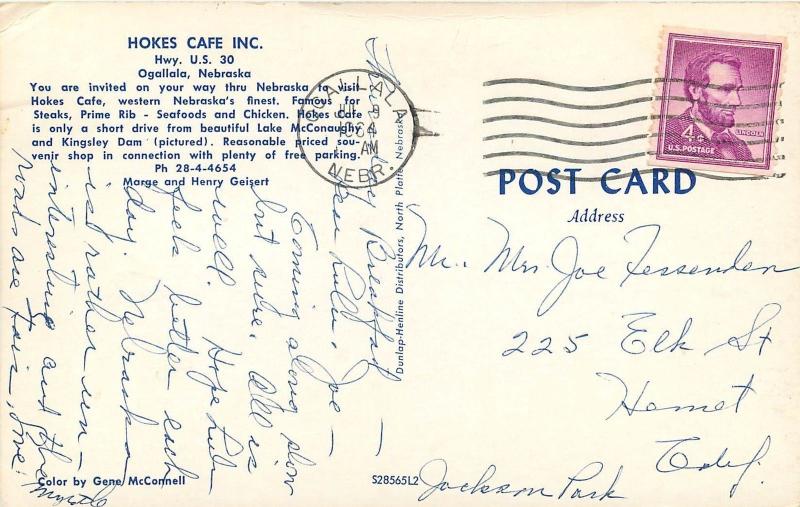 HOKES CAFE INC.
Hwy. U.S. 30
Ogallala, Nebraska
You are invited on your way thru Nebraska to visit
Hokes Cafe, western Nebraska's finest. Famous for
Steaks, Prime Rib - Seafoods and Chicken. Hokes Cafe
is only a short drive from beautiful Lake McConaughy
and Kingsley Dam (pictured). Reasonable priced sou-
venir shop in connection with plenty of free parking.
Ph 28-4-4654
Marge and Henry Geisert
Breakfast —
Dear Lulu, Joe —
Coming along slow
but sure. All is
well. Hope Lulu
feels better each
day. Nebraska
is rather un-
interesting and the
roads are fair, Love.
Myrtle
Color by Gene McConnell
S28565L2
Dunlap-Henline Distributors, North Platte, Nebraska
OGALLALA
JUL
1964
AM
NEBR.
4¢
LINCOLN
U.S. POSTAGE
POST CARD
Address
Mr. Mrs. Joe Fessenden
225 Elk St
Hemet
Calif.
Jackson Park